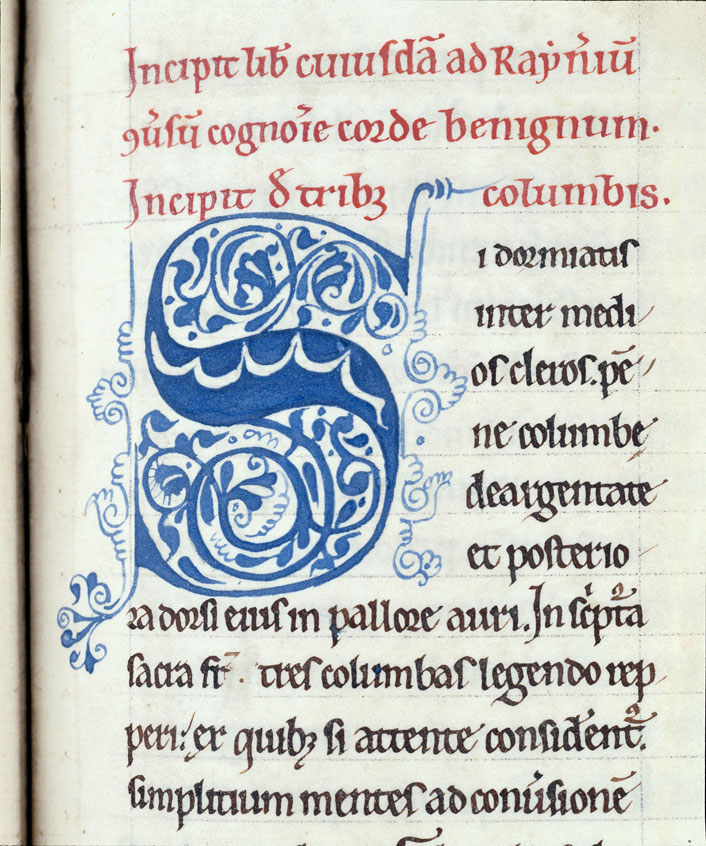 Incipit lib̄ cuiusdā ad Raẏn̄iū
ꝯv̄sū cognoīe corde benignum.
Incipit đ tribꝫ columbis.
Si dormiatis
inter medi
os cleros. pē
ne columbe
deargentate
et posterio
ra dorsi eius in pallore auri. In sc̄ptᷓa
sacra fr̄. tres columbas legendo rep
peri: ex quibꝫ si attente consid̄entᷓ.
simplitium mentes ad conv̄sionē